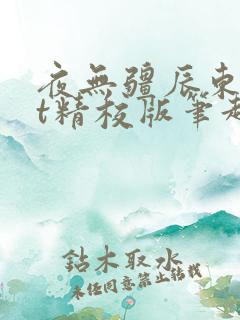 夜無疆辰東
t精校版筆趣
鉆木取水
未經同意禁止轉載